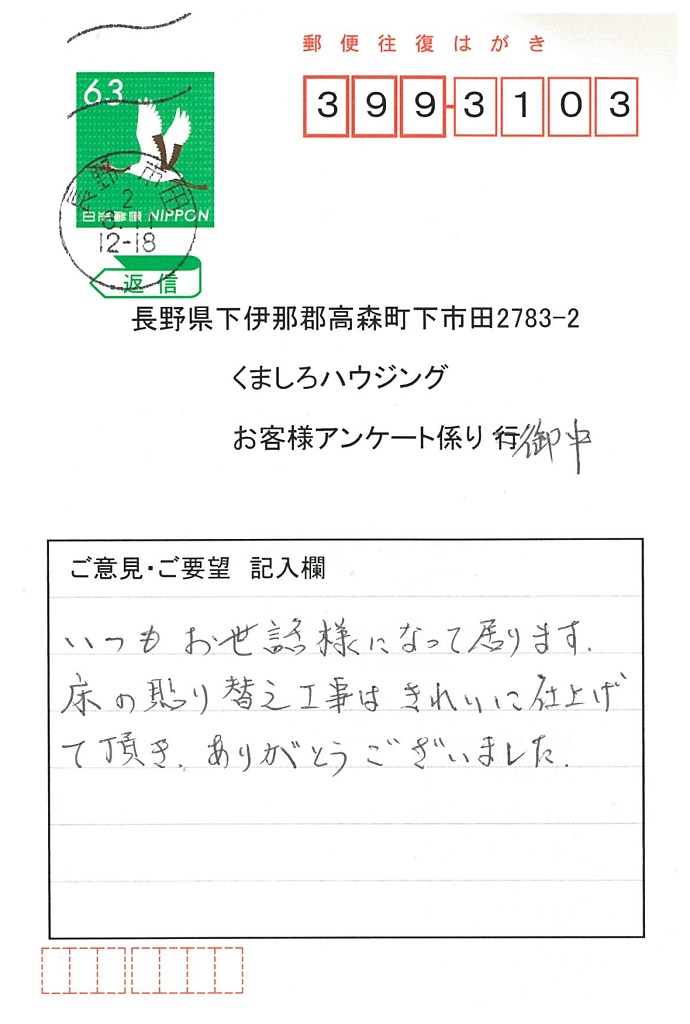 郵便往復はがき
63
399-3103
長野 市田
2
12-18
日本郵便 NIPPON
返信
長野県下伊那郡高森町下市田2783-2
くましろハウジング
お客様アンケート係り 行 御中
ご意見・ご要望 記入欄
いつもお世話様になって居ります.
床の貼り替え工事はきれいに仕上げ
て頂き.ありがとうございました.